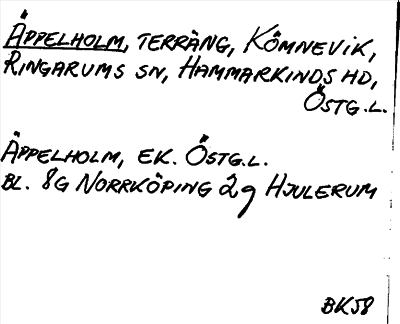 Äppelholm, terräng, Kömnevik,
Ringarums sn, Hammarkinds hd,
Östg.l.
Äppelholm, ek. Östg.l.
bl. 8G Norrköping 2g Hjulerum
BK58